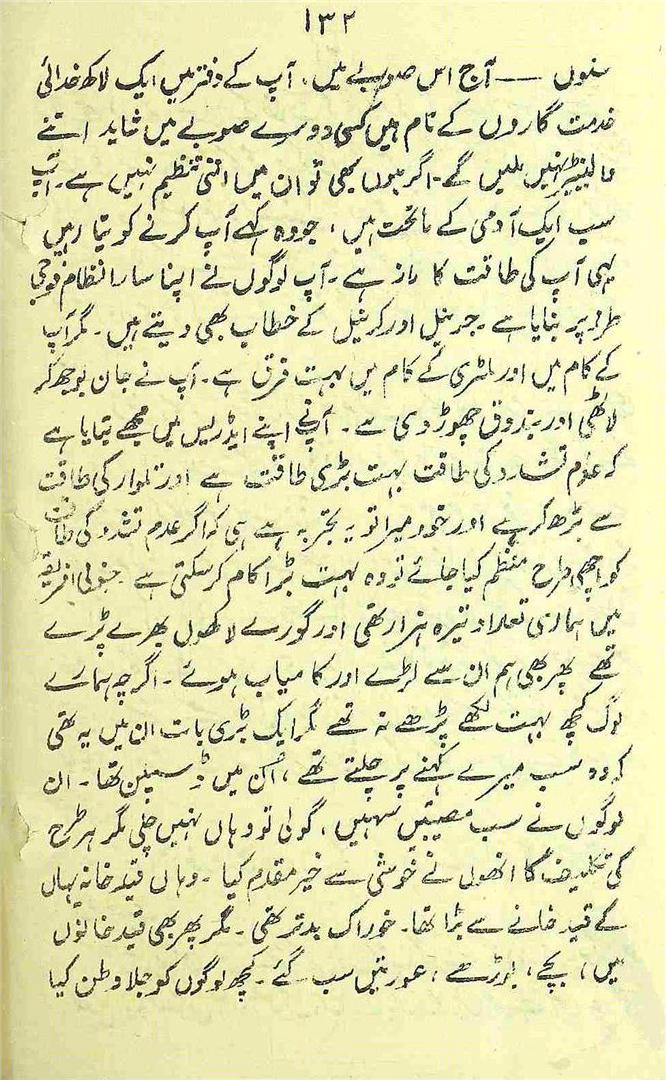 ۱۳۲
سنوں — آج اس صوبے میں، آپ کے دفتر میں ایک لاکھ خدائی
خدمت گاروں کے نام ہیں کسی دوسرے صوبے میں شاید اتنے
والینٹیر نہیں ملیں گے۔ اگر ہوں بھی تو ان میں اتنی تنظیم نہیں ہے۔ آپ
سب ایک آدمی کے ماتحت ہیں، جو وہ کہے آپ کرنے کو تیار ہیں
یہی آپ کی طاقت کا راز ہے۔ آپ لوگوں نے اپنا سارا نظام فوجی
طرز پر بنایا ہے۔ جرنیل اور کرنیل کے خطاب بھی دیتے ہیں۔ مگر آپ
کے کام میں اور ملٹری کے کام میں بہت فرق ہے۔ آپ نے جان بوجھ کر
لاٹھی اور بندوق چھوڑ دی ہے۔ آپنے اپنے ایڈریس میں مجھے بتایا ہے
کہ عدم تشدد کی طاقت بہت بڑی طاقت ہے اور تلوار کی طاقت
سے بڑھ کر ہے اور خود میرا تو یہ تجربہ ہے ہی کہ اگر عدم تشدد کی طاقت
کو اچھی طرح منظم کیا جائے تو وہ بہت بڑا کام کر سکتی ہے۔ جنوبی افریقہ
میں ہماری تعداد تیرہ ہزار تھی اور گورے لاکھوں بھرے پڑے
تھے پھر بھی ہم ان سے لڑے اور کامیاب ہوئے۔ اگرچہ ہمارے
لوگ کچھ بہت لکھے پڑھے نہ تھے مگر ایک بڑی بات ان میں یہ تھی
کہ وہ سب میرے کہنے پر چلتے تھے، اُن میں ڈسپلن تھا۔ ان
لوگوں نے سب مصیبتیں سہیں، گولی تو وہاں نہیں چلی مگر ہر طرح
کی تکلیف کا انھوں نے خوشی سے خیر مقدم کیا۔ وہاں قید خانہ یہاں
کے قید خانے سے بڑا تھا۔ خوراک بدتر تھی۔ مگر پھر بھی قید خانوں
میں، بچے، بوڑھے، عورتیں سب گئے۔ کچھ لوگوں کو جلا وطن کیا